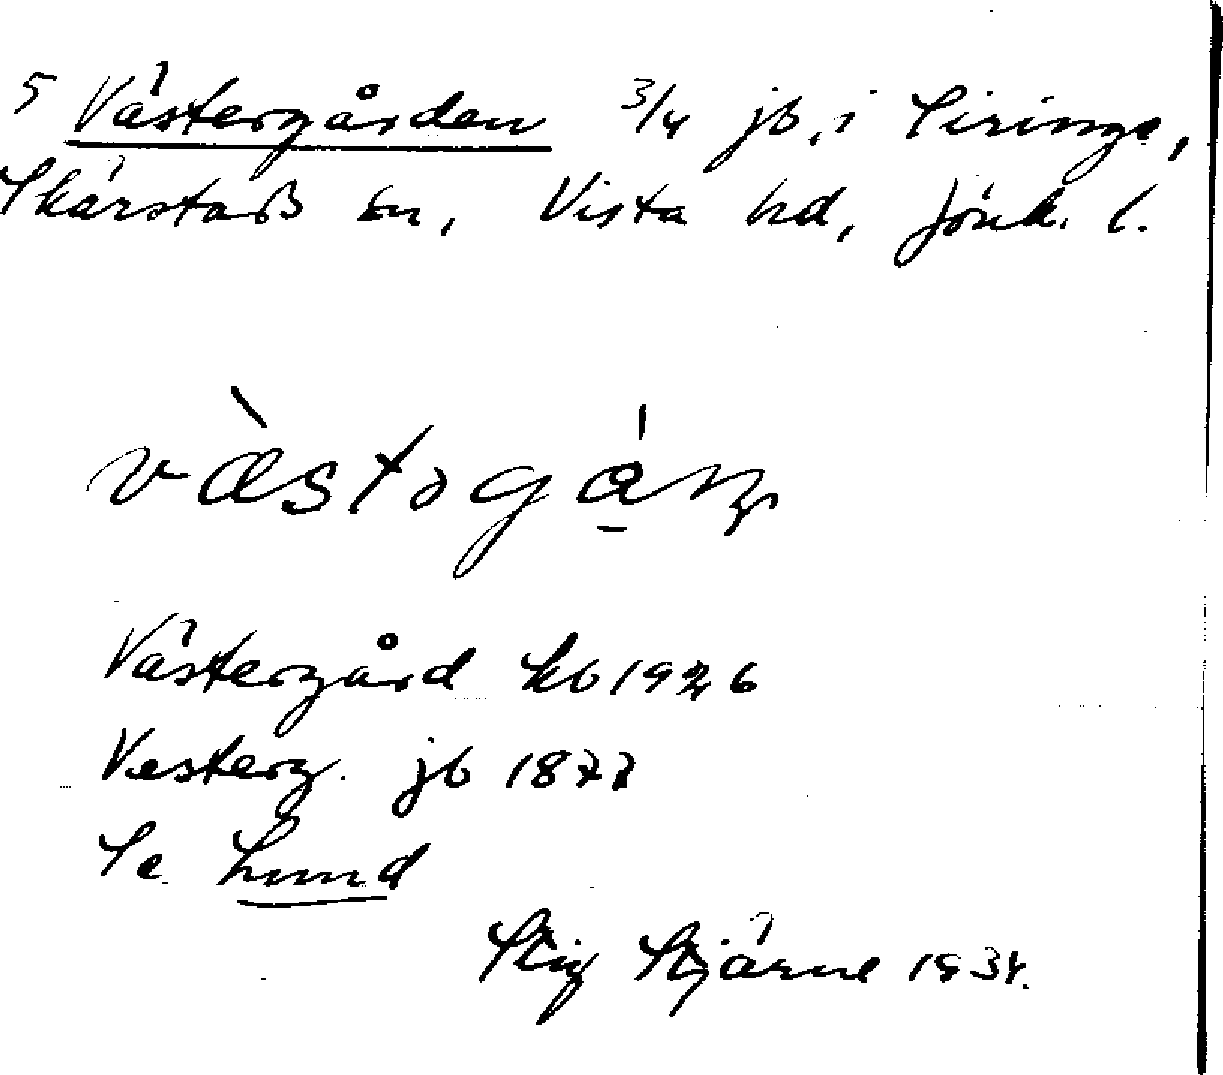 5 Västergården 3/4 jb, i Siringe,
Skärstads sn, Vista hd, Jönk. l.
væ̀stəgá̱ṇ
Västergård kb 1926
Vesterg. jb 1877
Se Lund
Stig Stjärne 1934.